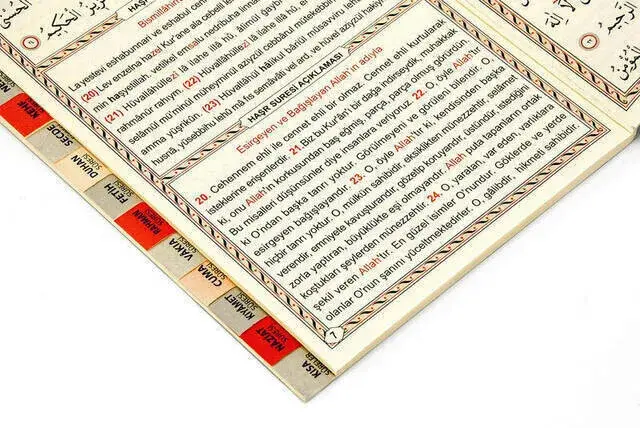 Bismillâhir
Layestevî eshabunnari ve eshabul cenneh
(20) Lev enzelna hazel Kur'ane ala cebelil le
min haşyetillah. vetilkel emsalu nedribuha linna
(21) Hüvallâhüllezî lâ ilahe illâ hû, âlimül ğaybi
rahmânür rahîm. (22) Hüvallâhüllezî lâ ilahe illâ hû, el
selâmül mü'minül müheyminül azîzül cebbârul mütekebbir
amma yüşrikûn. (23) Hüvallâhül hâlikul bâriül müsavviru lehül
husnâ, yüsebbihu lehû mâ fis semâvâti vel ard, ve hüvel azizül hakîm
HAŞR SURESİ AÇIKLAMASI
Esirgeyen ve Bağışlayan Allah'ın adıyla
20. Cehennem ehli ile cennet ehli bir olmaz. Cennet ehli kurtularak
isteklerine erişenlerdir. 21. Biz bu Kur'ân'ı bir dağa indirseydik, muhakkak
ki, onu Allah'ın korkusundan baş eğmiş, parça, parça olmuş görürdün.
Bu misalleri düşünsünler diye insanlara veriyoruz. 22. O, öyle Allah'tır
ki O'ndan başka tanrı yoktur. Görülmeyeni ve görüleni bilendir. O,
esirgeyen bağışlayandır. 23. O, öyle Allah'tır ki, kendisinden başka
hiçbir tanrı yoktur. O, mülkün sahibidir, eksiklikten münezzehtir, selâmet
verendir, emniyete kavuşturandır, gözetip koruyandır, üstündür, istediğini
zorla yaptıran, büyüklükte eşi olmayandır. Allah puta tapanların ortak
koştukları şeylerden münezzehtir. 24, O, yaratan, var eden, varlıklara
şekil veren Allah'tır. En güzel isimler O'nundur. Göklerde ve yerde
olanlar O'nun şanını yüceltmektedirler. O, gâlibdir, hikmeti sahibidir.
7
KEHF
SÛRESİ
SECDE
SÛRESİ
DUHAN
SÛRESİ
FETİH
SÛRESİ
RAHMAN
SÛRESİ
VAKIA
SÛRESİ
CUMA
SÛRESİ
KIYAMET
SÛRESİ
NAZİAT
SÛRESİ
KISA
SÛRELER